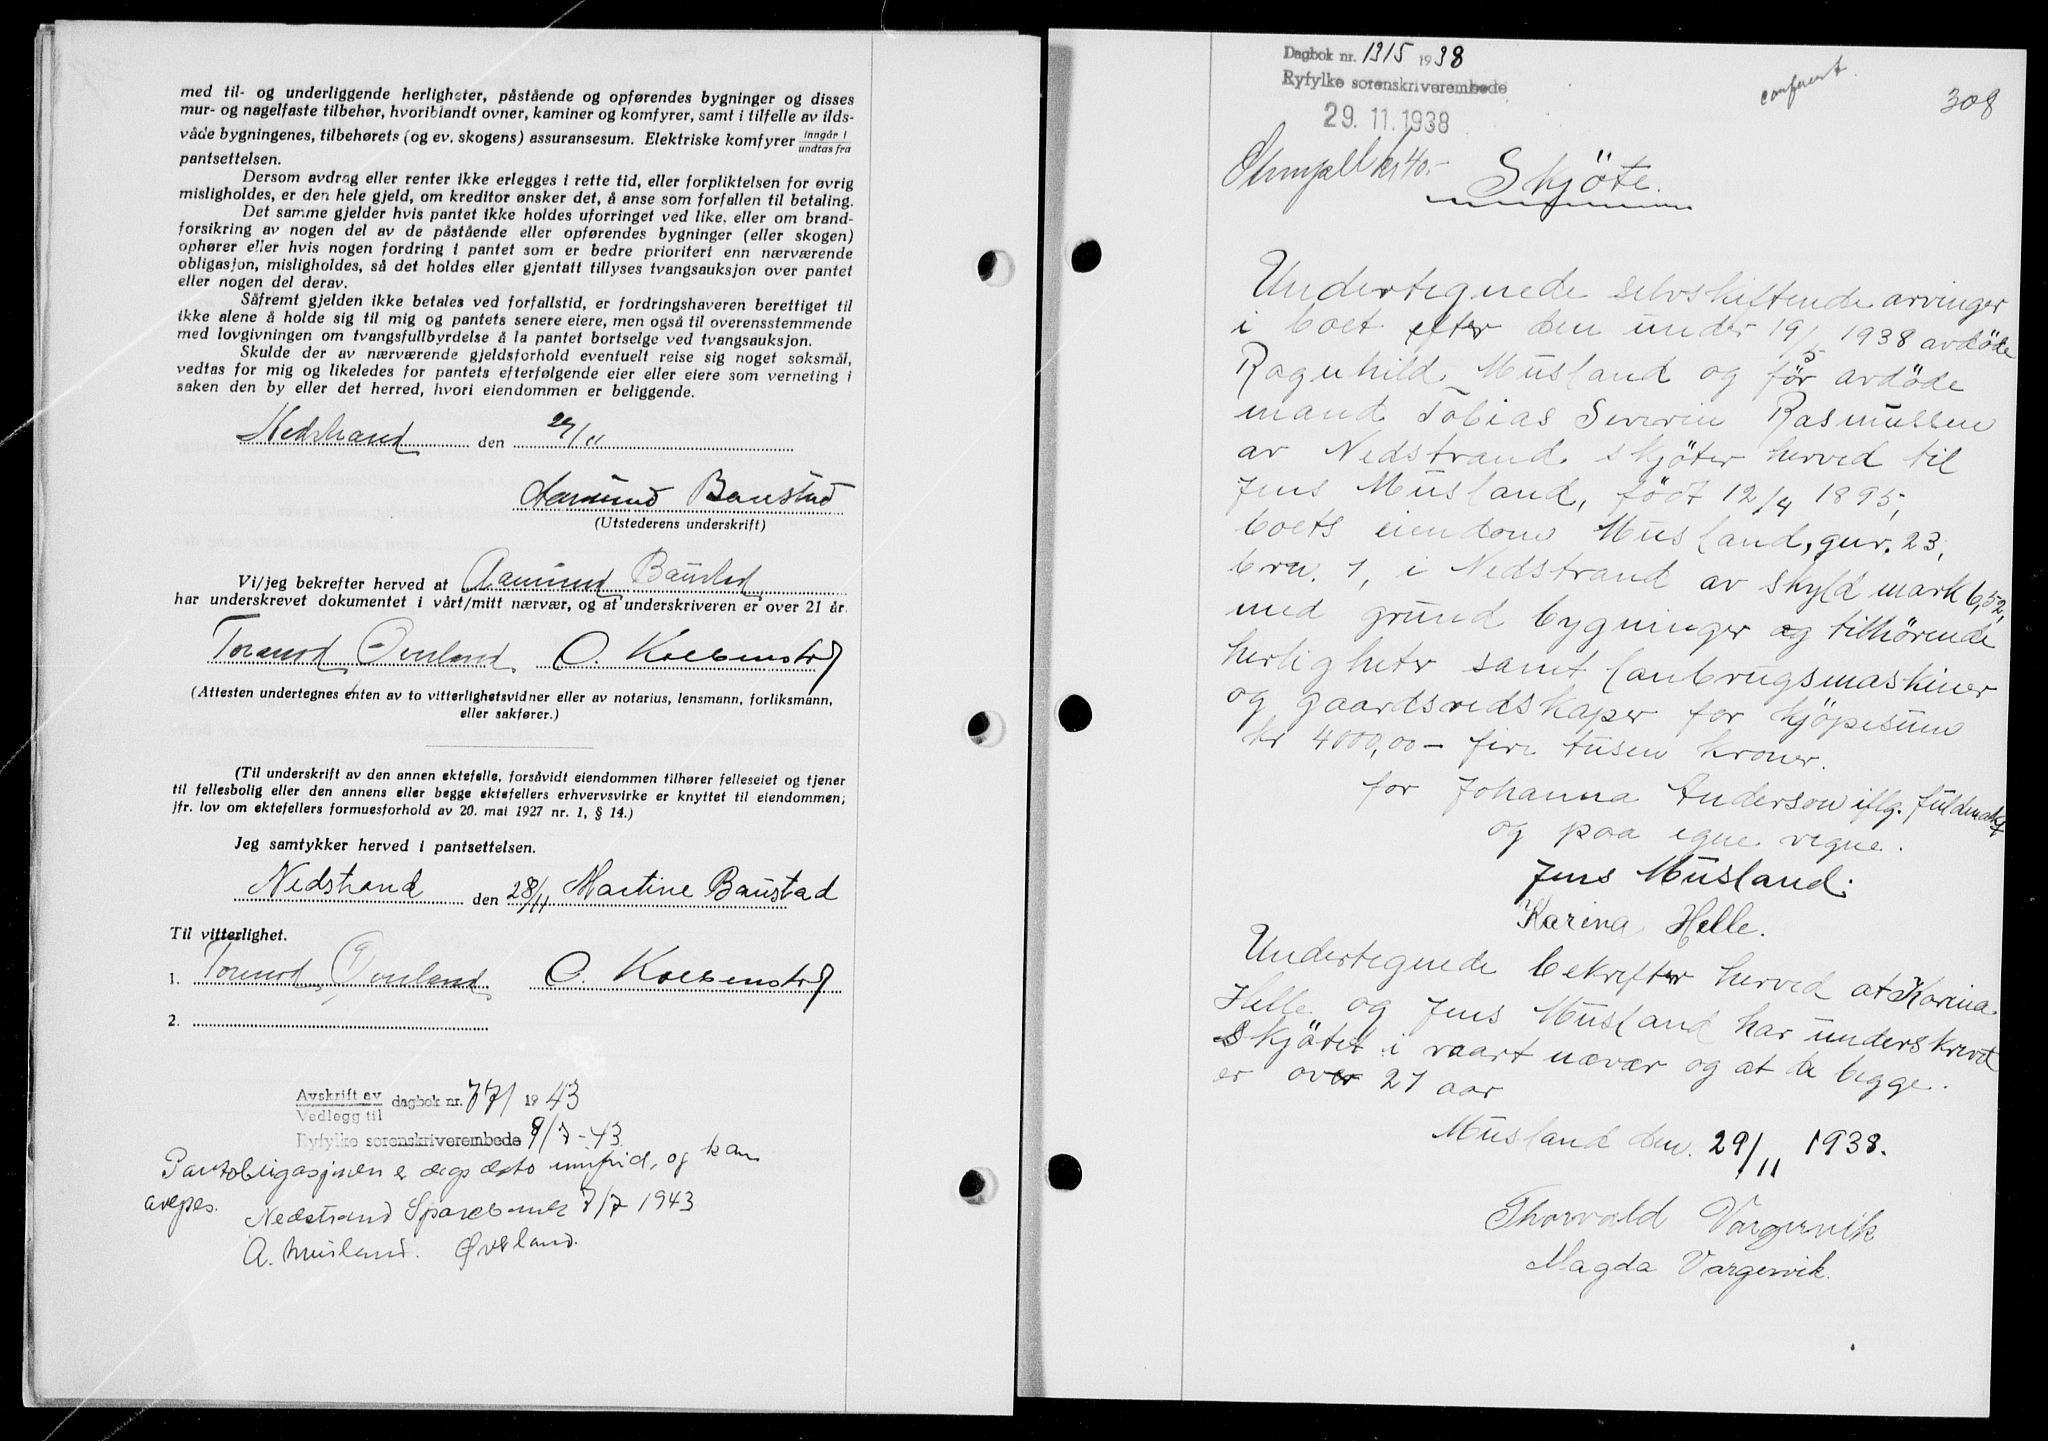 med til- og underliggende herligheter, påstående og opførendes bygninger og disses
mur- og nagelfaste tilbehør, hvoriblandt ovner, kaminer og komfyrer, samt i tilfelle av ilds-
våde bygningenes, tilbehørets (og ev. skogens) assuransesum. Elektriske komfyrer inngår i
undtas fra
pantsettelsen.
Dersom avdrag eller renter ikke erlegges i rette tid, eller forpliktelsen for øvrig
misligholdes, er den hele gjeld, om kreditor ønsker det, å anse som forfallen til betaling.
Det samme gjelder hvis pantet ikke holdes uforringet ved like, eller om brand-
forsikring av nogen del av de påstående eller opførendes bygninger (eller skogen)
ophører eller hvis nogen fordring i pantet som er bedre prioritert enn nærværende
obligasjon, misligholdes, så det holdes eller gjentatt tillyses tvangsauksjon over pantet
eller nogen del derav.
Såfremt gjelden ikke betales ved forfallstid, er fordringshaveren berettiget til
ikke alene å holde sig til mig og pantets senere eiere, men også til overensstemmende
med lovgivningen om tvangsfullbyrdelse å la pantet bortselge ved tvangsauksjon.
Skulde der av nærværende gjeldsforhold eventuelt reise sig noget søksmål,
vedtas for mig og likeledes for pantets efterfølgende eier eller eiere som verneting i
saken den by eller det herred, hvori eiendommen er beliggende.
Nedstrand den /11
Aamund Baustad
(Utstederens underskrift)
Vi/jeg bekrefter herved at Aamund Baustad
har underskrevet dokumentet i vårt/mitt nærvær, og at underskriveren er over 21 år.
Tormod Øverland O.
(Attesten undertegnes enten av to vitterlighetsvidner eller av notarius, lensmann, forliksmann,
eller sakfører.)
(Til underskrift av den annen ektefelle, forsåvidt eiendommen tilhører felleseiet og tjener
til fellesbolig eller den annens eller begge ektefellers erhvervsvirke er knyttet til eiendommen;
jfr. lov om ektefellers formuesforhold av 20. mai 1927 nr. 1, § 14.)
Jeg samtykker herved i pantsettelsen.
Nedstrand den 28/11 Martine Baustad
Til vitterlighet.
1. Tormod Øverland O.
2.
Avskrift av
Vedlegg til
dagbok nr. 771 1943
Ryfylke sorenskriverembede 9/7-43
Pantobligasjonen er dags dato innfrid, og kan
avlyses.
Nedstrand Sparebank 7/7 1943
A. Musland. Øverland.
Dagbok nr. 1315 1938
Ryfylke sorenskriverembede
29.11.1938
conferert.
308
Stempel kr 40.-
Skjöte.
Undertegnede selvskiftende arvinger
i boet efter den under 19/5 1938 avdöde
Ragnhild Musland og før avdöde
mand Tobias Severin Rasmussen
av Nedstrand skjöter herved til
Jens Musland, födt 12/4 1895,
boets eiendom Musland, gnr. 23,
brn. 1, i Nedstrand av skyld mark 6,52,
med grund bygninger og tilhørende
herligheter samt lanbrugsmaskiner
og gaardsredskaper for kjöpesum
kr 4000,00 - fire tusen kroner.
for Johanna Anderson iflg. fuldmakt
og paa egne vegne.
Jens Musland.
Karina Helle.
Undertegnede bekrefter herved at Karina
Helle og Jens Musland har underskrevet
skjötet i vaart nævær og at de begge
er over 21 aar
Musland den. 29/11 1938.
Thorvald Vargervik
Magda Vargervik.